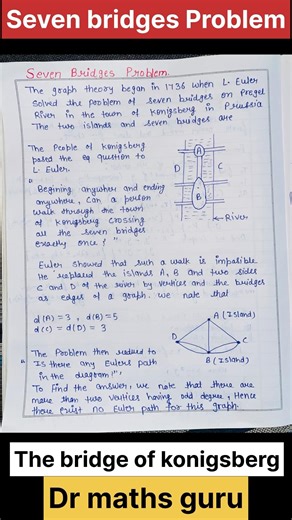 Seven bridges Problem
Seven Bridges Problem.
The graph theory began in 1736 when L. Euler
Solved the problem of seven bridges on Pregel
River in the town of Konigsberg in Prussia
The two islands and seven bridges are
The People of Konigsberg
posed the eq question to
L. Euler.
"Begining anywhere and ending
anywhere, Can a person
walk through the town
of Konigsberg crossing
all the seven bridges
exactly once?"
A
D
C
B
← River
Euler showed that such a walk is impossible
He replaced the islands A, B and two sides
C and D of the river by vertices and the bridges
as edges of a graph. we note that
d(A) = 3, d(B) = 5
d(C) = d(D) = 3
A (Island)
D
C
B (Island)
The Problem then reduced to
"Is there any Euler's path
in the diagram?"
To find the answer, we note that there are
more than two vertices having odd degree, Hence
there exist no Euler path for this graph.
The bridge of konigsberg
Dr maths guru